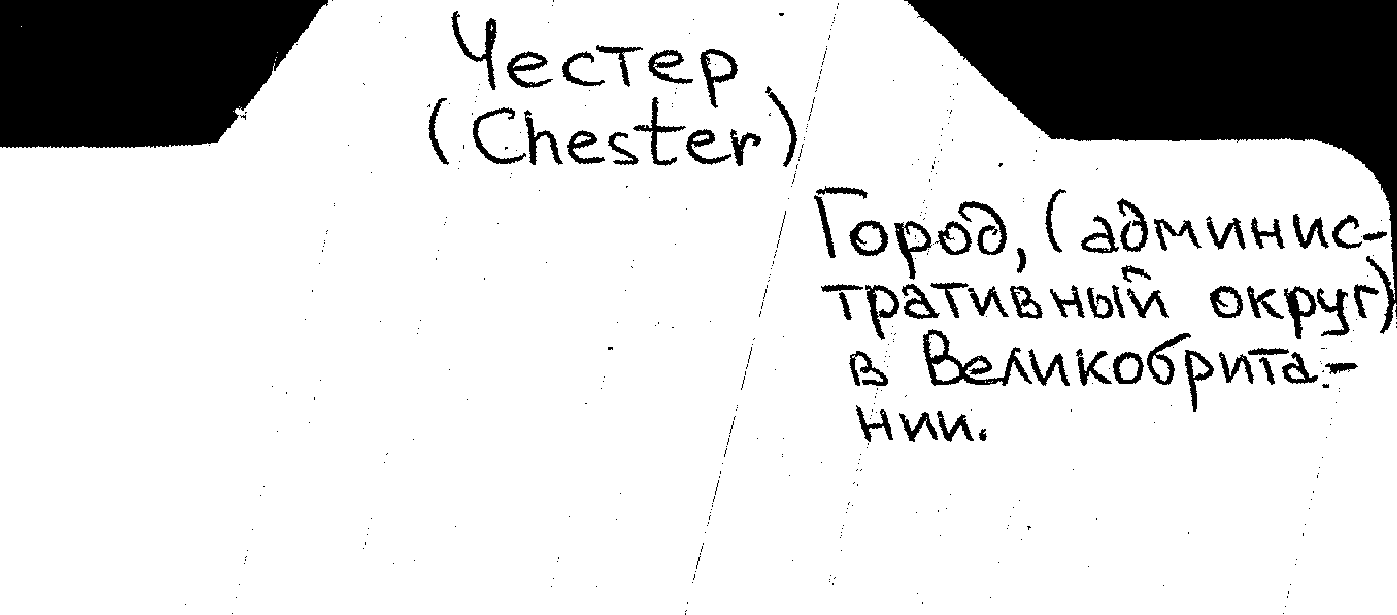 Честер
(Chester)
Город, (админис-
тративный округ)
в Великобрита-
нии.